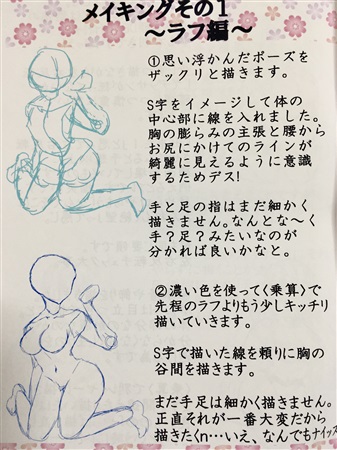 メイキングその１
〜ラフ編〜
①思い浮かんだポーズを
ザックリと描きます。
S字をイメージして体の
中心部に線を入れました。
胸の膨らみの主張と腰から
お尻にかけてのラインが
綺麗に見えるように意識
するためデス!
手と足の指はまだ細かく
描きません。なんとな〜く
手？足？みたいなのが
分かれば良いかなと。
②濃い色を使って〈乗算〉で
先程のラフよりもう少しキッチリ
描いていきます。
S字で描いた線を頼りに胸の
谷間を描きます。
まだ手足は細かく描きません。
正直それが一番大変だから
描きたくn…いえ、なんでもナイッス